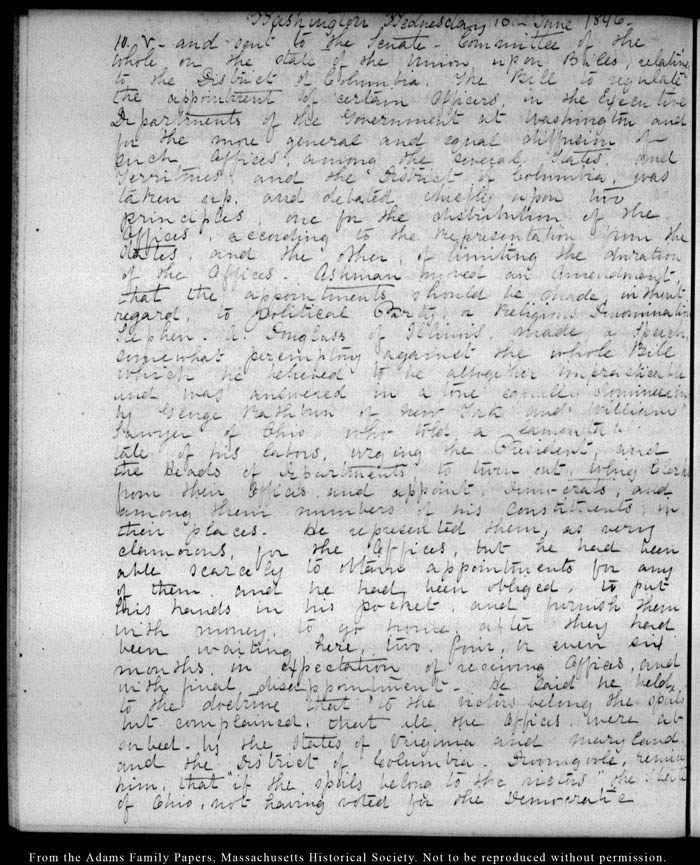 Washington Wednesday 10. June 1846-
10. V- and sent to the Senate- Committee of the
whole on the state of the Union, upon Bills, relating
to the District of Columbia. The Bill to regulate
the appointment of certain Officers, in the Executive
Departments of the Government at Washington and
for the more general and equal diffusion of
such Offices, among the several States, and
Territories, and the District of Columbia, was
taken up, and debated chiefly upon two
principles, one for the distribution of the
Offices, according to the Representation from the
States, and the other, of limiting the duration
of the Offices. Ashman moved an amendment
that the appointments should be made, without
regard, to political Party, or Religious Denomination
Stephen. A. Douglass of Illinois, made a Speech,
somewhat peremptory against the whole Bill
which he believed to be altogether impracticable
and was answered in a tone equally
by George Rathbun of New York and William
Sawyer of Ohio, who told a lamentable
tale of his labors, urging the President, and
the Heads of Departments to turn out, Whig Clerks
from their Offices, and appoint, Democrats, and
among them numbers of his Constituents, in
their places. He represented them, as very
clamorous, for the Offices, but he had been
able scarcely to obtain appointments for any
of them, and he had, been obliged, to put
his hands in his pocket, and furnish them
with money, to go home after they had
been waiting here, two, four, or even six
months, in expectation of receiving Offices, and
with final, disappointment- He said he held,
to the doctrine that "to the victors belong the spoils"
but complained, that all the Offices were ab
sorbed- by the States of Virginia and Maryland,
and the District of Columbia.
him, that "if the spoils belong to the victors" the State
of Ohio, not having voted for the Democratic
From the Adams Family Papers, Massachusetts Historical Society. Not to be reproduced without permission.